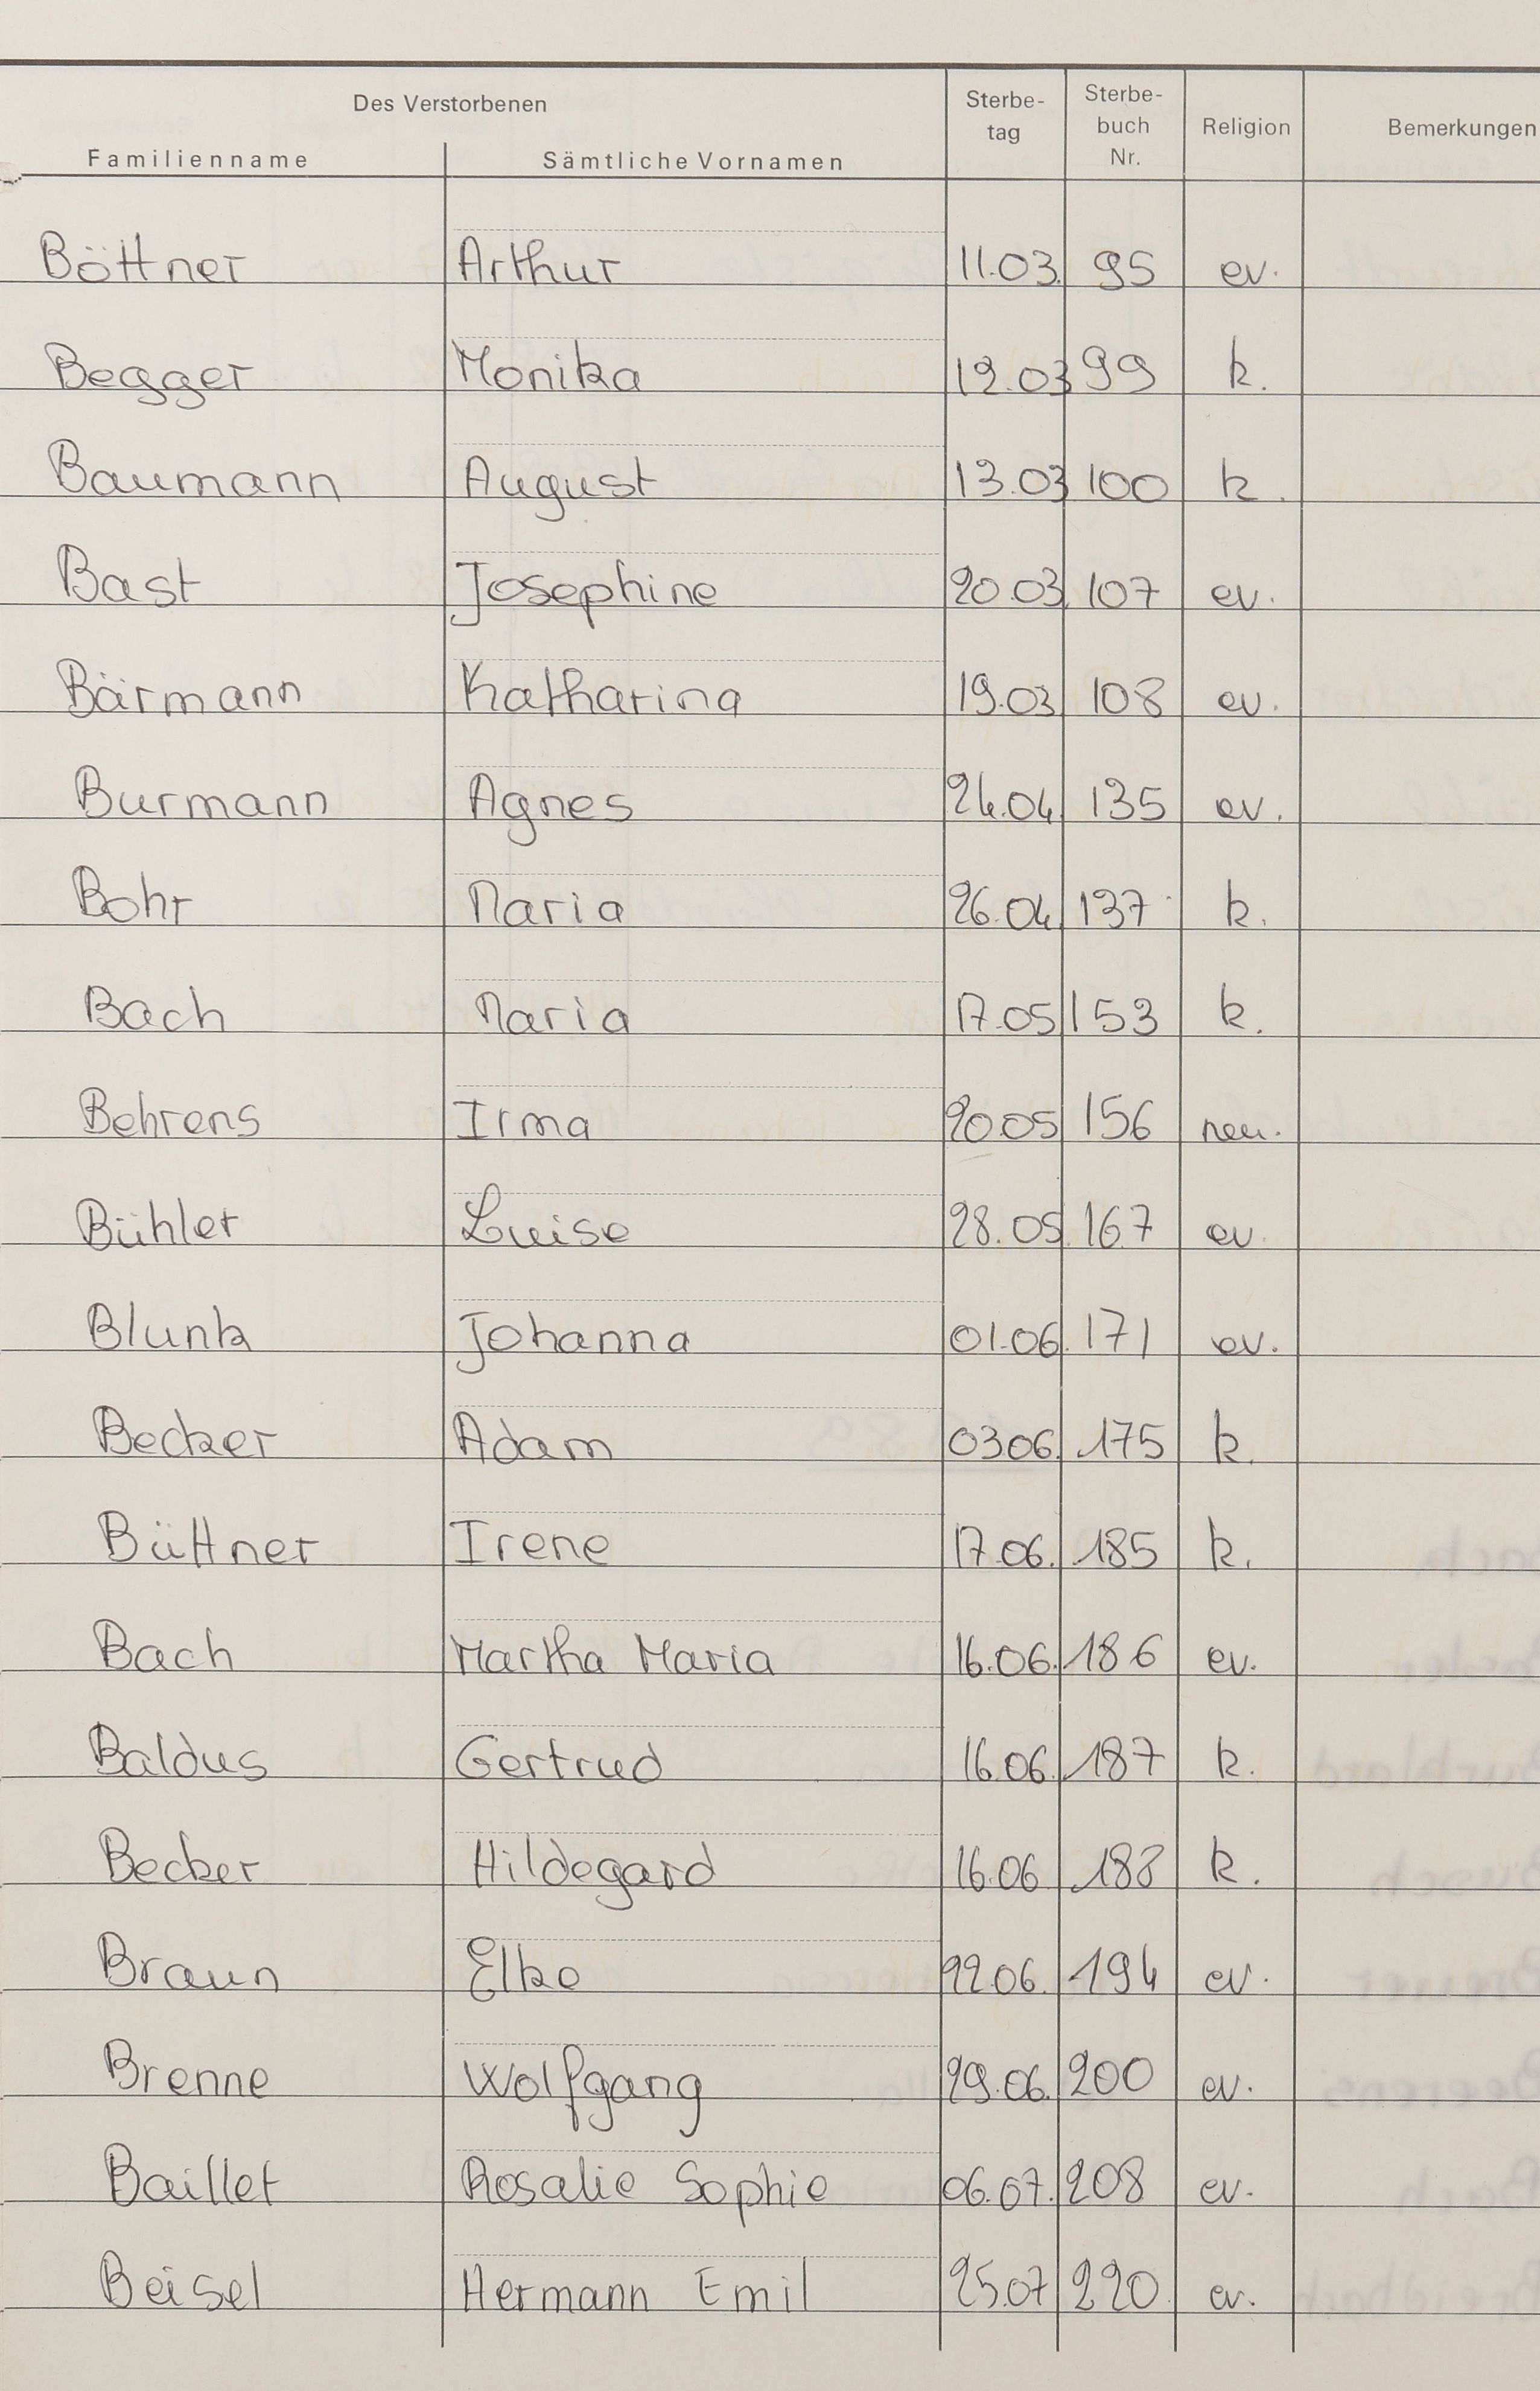 Des Verstorbenen
Familienname Sämtliche Vornamen Sterbe-tag Sterbe-buch Nr. Religion Bemerkungen
Böttner Arthur 11.03. 95 ev.
Begger Monika 12.03 99 k.
Baumann August 13.03 100 k.
Bast Josephine 20.03. 107 ev.
Bärmann Katharina 19.03 108 ev.
Burmann Agnes 24.04. 135 ev.
Bohr Maria 26.04. 137 k.
Bach Maria 17.05 153 k.
Behrens Irma 20.05 156 neu.
Bühler Luise 28.05. 167 ev.
Blunk Johanna 01.06. 171 ev.
Becker Adam 03.06. 175 k.
Büttner Irene 17.06. 185 k.
Bach Martha Maria 16.06. 186 ev.
Baldus Gertrud 16.06. 187 k.
Becker Hildegard 16.06 188 k.
Braun Elke 22.06. 194 ev.
Brenne Wolfgang 29.06. 200 ev.
Baillet Rosalie Sophie 06.07. 208 ev.
Beisel Hermann Emil 25.07 220 ev.